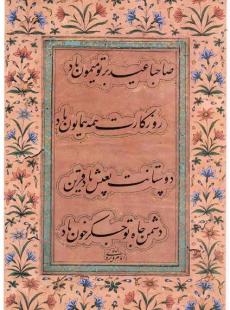 صاحبا عید بر تو میمون باد
روزگارت همه همایون باد
دوستانت بعیش و ناز قرین
دشمن جاه تو جگر خون باد